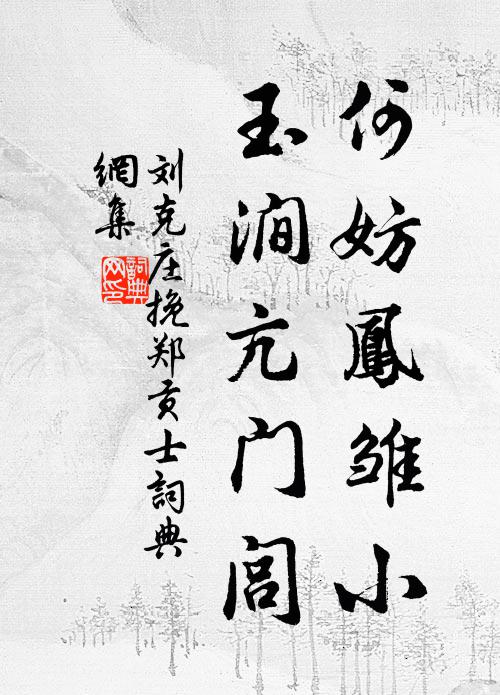 何妨鳳雏小
玉澗亢门闾
刘克庄挽郑贡士詞典
網集
詞典网印